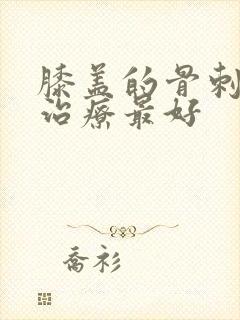 膝盖的骨刺
治療最好
喬衫